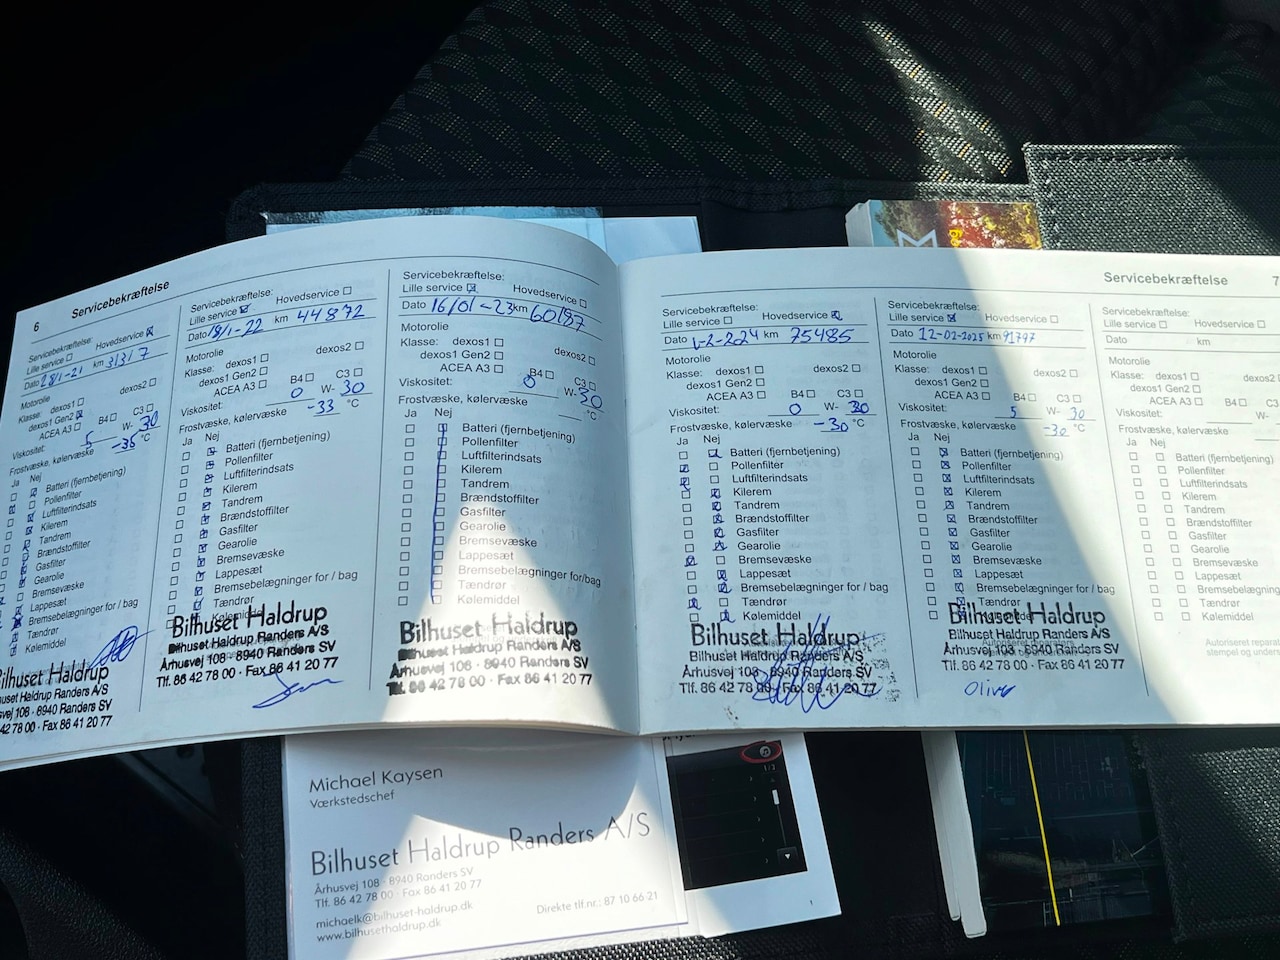 6 Servicebekræftelse
Servicebekræftelse:
Lille service ☐ Hovedservice ☒
Dato 28/1-21 km 31317
Motorolie
Klasse: dexos1 ☐ dexos2 ☐
dexos1 Gen2 ☒
ACEA A3 ☐ B4 ☐ C3 ☐
Viskositet: 5 W- 30
Frostvæske, kølervæske -35 °C
Ja Nej
Batteri (fjernbetjening)
Pollenfilter
Luftfilterindsats
Kilerem
Tandrem
Brændstoffilter
Gasfilter
Gearolie
Bremsevæske
Lappesæt
Bremsebelægninger for / bag
Tændrør
Kølemiddel
Bilhuset Haldrup
Bilhuset Haldrup Randers A/S
Århusvej 108 · 8940 Randers SV
Tlf. 86 42 78 00 · Fax 86 41 20 77
Servicebekræftelse:
Lille service ☒ Hovedservice ☐
Dato 19/1-22 km 44872
Motorolie
Klasse: dexos1 ☐ dexos2 ☐
dexos1 Gen2 ☐
ACEA A3 ☐ B4 ☐ C3 ☐
Viskositet: 0 W- 30
Frostvæske, kølervæske -33 °C
Ja Nej
Batteri (fjernbetjening)
Pollenfilter
Luftfilterindsats
Kilerem
Tandrem
Brændstoffilter
Gasfilter
Gearolie
Bremsevæske
Lappesæt
Bremsebelægninger for / bag
Tændrør
Kølemiddel
Bilhuset Haldrup
Bilhuset Haldrup Randers A/S
Århusvej 108 · 8940 Randers SV
Tlf. 86 42 78 00 · Fax 86 41 20 77
Servicebekræftelse:
Lille service ☒ Hovedservice ☐
Dato 16/01-23 km 60187
Motorolie
Klasse: dexos1 ☐ dexos2 ☐
dexos1 Gen2 ☐
ACEA A3 ☐ B4 ☐ C3 ☐
Viskositet: 0 W- 30
Frostvæske, kølervæske °C
Ja Nej
Batteri (fjernbetjening)
Pollenfilter
Luftfilterindsats
Kilerem
Tandrem
Brændstoffilter
Gasfilter
Gearolie
Bremsevæske
Lappesæt
Bremsebelægninger for/bag
Tændrør
Kølemiddel
Bilhuset Haldrup
Bilhuset Haldrup Randers A/S
Århusvej 108 · 8940 Randers SV
Tlf. 86 42 78 00 · Fax 86 41 20 77
Servicebekræftelse 7
Servicebekræftelse:
Lille service ☐ Hovedservice ☒
Dato 1-2-2024 km 75485
Motorolie
Klasse: dexos1 ☐ dexos2 ☐
dexos1 Gen2 ☐
ACEA A3 ☐ B4 ☐ C3 ☐
Viskositet: 0 W- 30
Frostvæske, kølervæske -30 °C
Ja Nej
Batteri (fjernbetjening)
Pollenfilter
Luftfilterindsats
Kilerem
Tandrem
Brændstoffilter
Gasfilter
Gearolie
Bremsevæske
Lappesæt
Bremsebelægninger for / bag
Tændrør
Kølemiddel
Bilhuset Haldrup
Bilhuset Haldrup Randers A/S
Århusvej 108 · 8940 Randers SV
Tlf. 86 42 78 00 · Fax 86 41 20 77
Servicebekræftelse:
Lille service ☒ Hovedservice ☐
Dato 12-02-2025 km 91797
Motorolie
Klasse: dexos1 ☐ dexos2 ☐
dexos1 Gen2 ☐
ACEA A3 ☐ B4 ☐ C3 ☐
Viskositet: 5 W- 30
Frostvæske, kølervæske -30 °C
Ja Nej
Batteri (fjernbetjening)
Pollenfilter
Luftfilterindsats
Kilerem
Tandrem
Brændstoffilter
Gasfilter
Gearolie
Bremsevæske
Lappesæt
Bremsebelægninger for / bag
Tændrør
Bilhuset Haldrup
Bilhuset Haldrup Randers A/S
Århusvej 108 · 8940 Randers SV
Tlf. 86 42 78 00 · Fax 86 41 20 77
Oliver
Servicebekræftelse:
Lille service ☐ Hovedservice ☐
Dato km
Motorolie
Klasse: dexos1 ☐
dexos1 Gen2 ☐
ACEA A3 ☐ B4 ☐
Viskositet:
Frostvæske, kølervæske
Ja Nej
Batteri (fjernbetjening)
Pollenfilter
Luftfilterindsats
Kilerem
Tandrem
Brændstoffilter
Gasfilter
Gearolie
Bremsevæske
Lappesæt
Bremsebelægninger
Tændrør
Kølemiddel
Autoriseret
stempel og
Michael Kaysen
Værkstedschef
Bilhuset Haldrup Randers A/S
Århusvej 108 · 8940 Randers SV
Tlf. 86 42 78 00 · Fax 86 41 20 77
michaelk@bilhuset-haldrup.dk
www.bilhusethaldrup.dk
Direkte tlf.nr.: 87 10 66 21
1/3